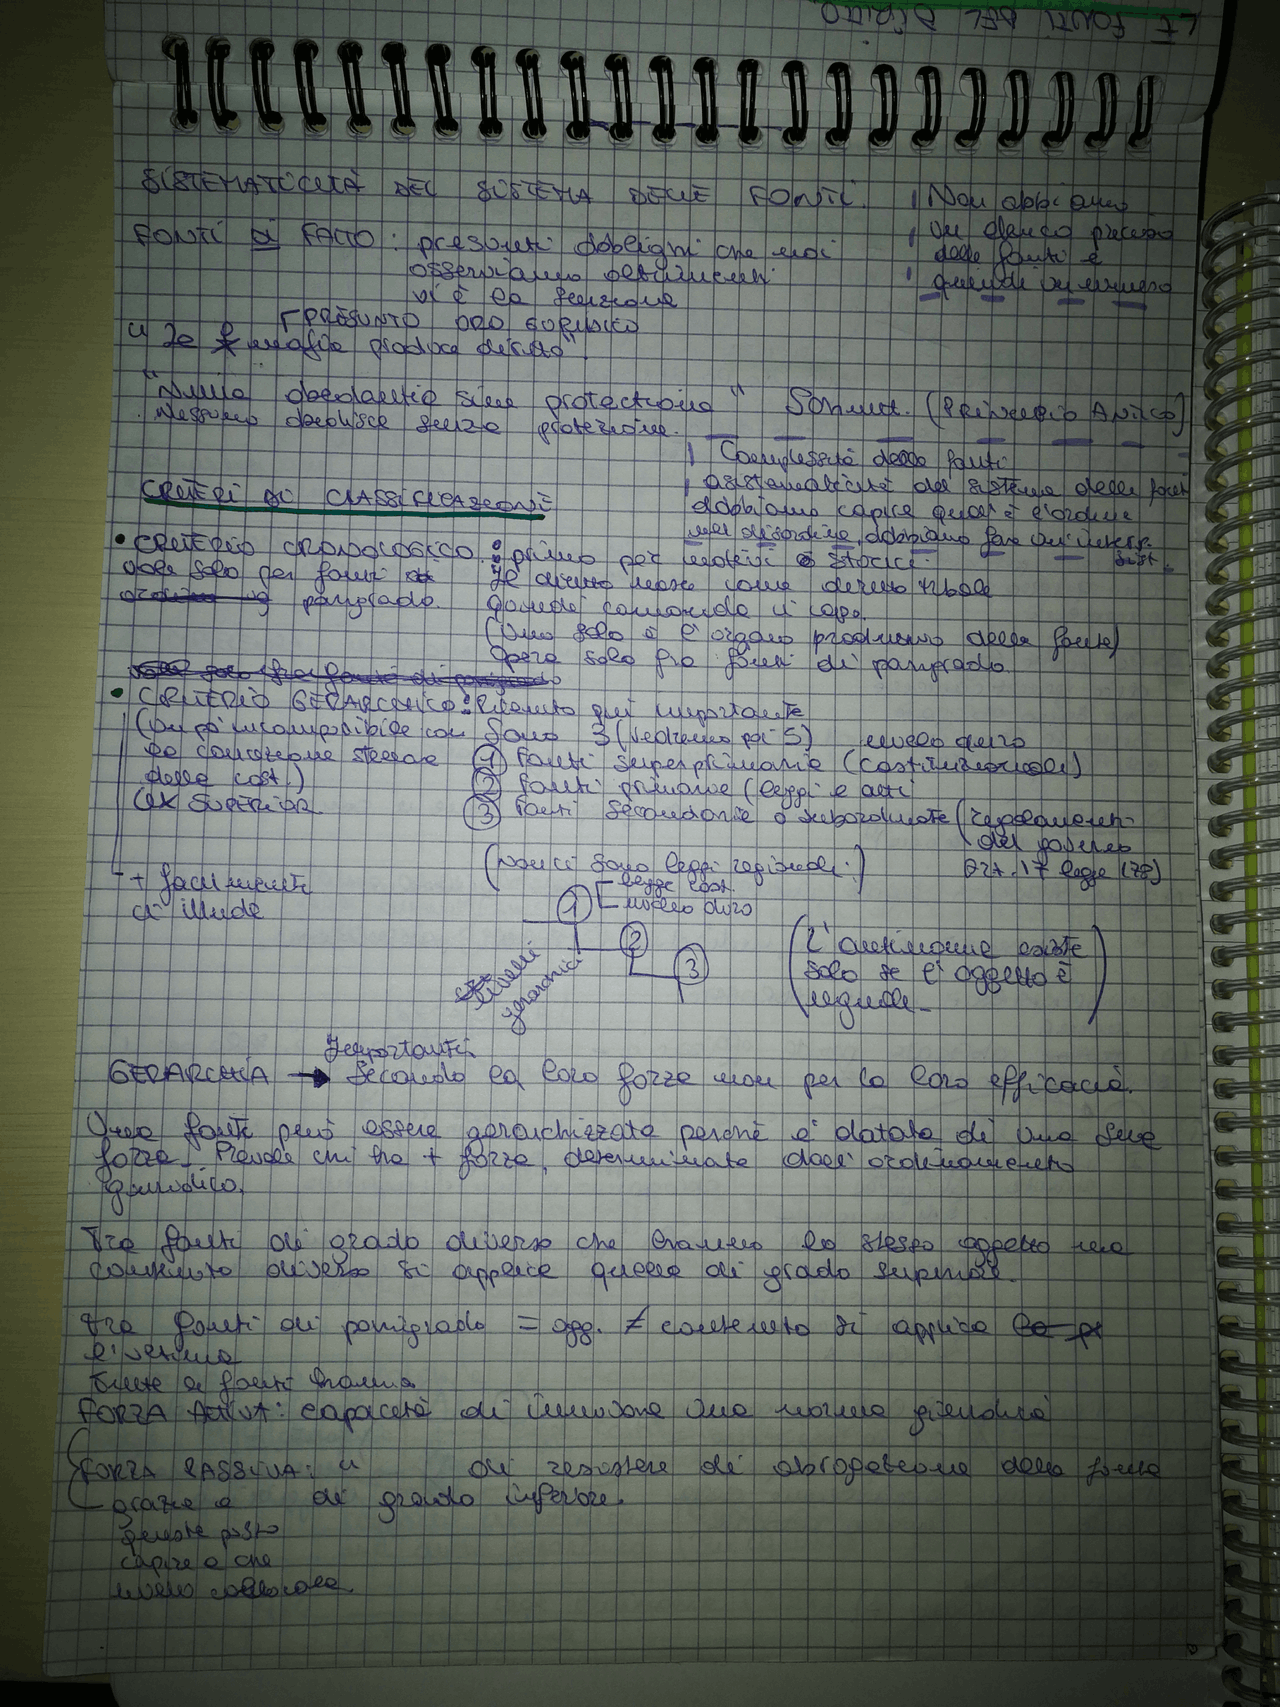 LE FONTI DEL DIRITTO
SISTEMATICITÀ DEL SISTEMA DELLE FONTI.
Non abbiamo
un elenco preciso
delle fonti e
quindi
FONTI di FATTO: presunti obblighi che noi
osserviamo altrimenti
vi è la sanzione
PRESUNTO
"La mafia produce diritto"
"Nulla obedientia sine protectione"
(Principio Antico)
Nessuno obbedisce senza protezione.
Complessità delle fonti
asistematicità del sistema delle fonti
dobbiamo capire qual'è l'ordine
nel disordine, dobbiamo fare un'interp.
sist.
CRITERI DI CLASSIFICAZIONE
• CRITERIO CRONOLOGICO: primo per motivi storici.
vale solo per fonti
parigrado.
Il diritto nasce come diritto tribale
quindi comanda il capo.
(Uno solo è l'organo produttivo delle fonte)
Opera solo fra fonti di parigrado.
• CRITERIO GERARCHICO: Ritenuto più importante
(Un po' incompatibile con
la concezione stessa
della cost.)
LEX SUPERIOR
Sono 3 (vedremo poi 5) nucleo duro
① Fonti superprimarie (costituzionali)
② Fonti primarie (leggi e atti
③ Fonti secondarie o subordinate (regolamenti
del governo
Art. 17 legge
(non ci sono leggi regionali.)
+ facilmente
si illude
① legge cost.
nucleo duro
②
③
livelli
gerarchici
(L'antinomie esiste
solo se l'oggetto è
uguale.)
Importante
GERARCHIA → secondo la loro forza non per la loro efficacia.
Una fonte può essere gerarchizzata perchè è dotata di una sua
forza. Prevale chi ha + forza, determinata dall'ordinamento
giuridico.
Tra fonti di grado diverso che hanno lo stesso oggetto ma
contenuto diverso si applica quella di grado superiore.
tra fonti di parigrado = ogg. ≠ contenuto si applica
l'ultima
Tutte le fonti hanno
FORZA ATTIVA: capacità di innovare una norma giuridica
FORZA PASSIVA: " di resistere di abrogazione della fonte
di grado inferiore.
grazie a
queste posso
capire a che
livello